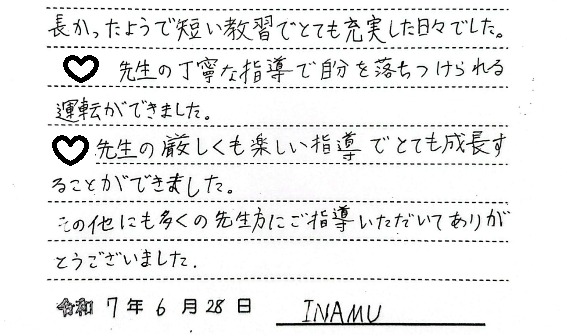 長かったようで短い教習でとても充実した日々でした。
♡ 先生の丁寧な指導で自分を落ちつけられる
運転ができました。
♡ 先生の厳しくも楽しい指導でとても成長す
ることができました。
この他にも多くの先生方にご指導いただいてありが
とうございました.
令和 7 年 6 月 28 日 INAMU